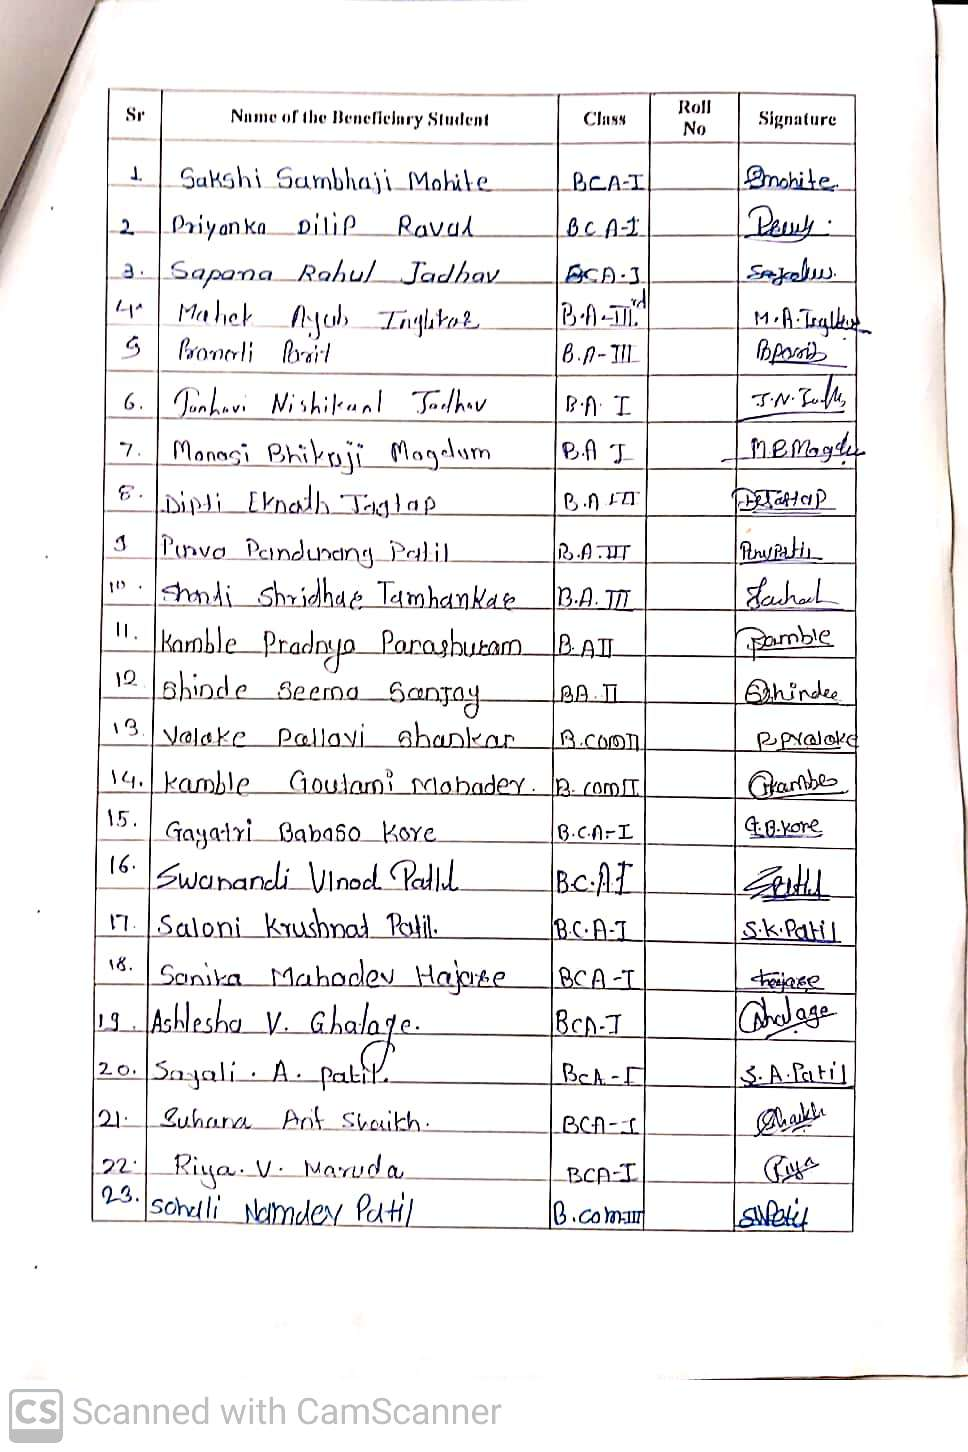 Sr Name of the Beneficiary Student Class Roll No Signature
1. Sakshi Sambhaji Mohite BCA-I Smohite
2 Priyanka Dilip Raval BCA-I
3. Sapana Rahul Jadhav BCA-I
4. Mahek Ayub Inglikar B.A-IIIrd M.A.
5 Pranali Parit B.A-III
6. Janhavi Nishikant Jadhav B.A. I J.N.
7. Manasi Bhikaji Magdum B.A I M.B.Magdu
8. Dipti Eknath Jagtap B.A
9 Purva Pandurang Patil B.A.III
10. Shridhar Tamhankar B.A. III
11. Kamble Pradnya Parashuram B.A II
12 Shinde Seema Sanjay BA. II Shindee
13. Valake Pallavi Shankar B.com II
14. Kamble Goutami Mahadev. B.com II
15. Gayatri Babaso Kore B.C.A-I G.B.Kore
16. Swanandi Vinod Patil B.C.A I
17. Saloni Krushnat Patil. B.C.A-I S.K.Patil
18. Sanika Mahadev Hajare BCA-I Hajare
19. Ashlesha V. Ghalage. BCA-I Ghalage
20. Sayali. A. patil. BCA-I S.A.Patil
21. Suhana Arif Shaikh. BCA-I Shaikh
22. Riya. V. Maruda BCA-I Riya
23. Namdev Patil B.com III
CS Scanned with CamScanner